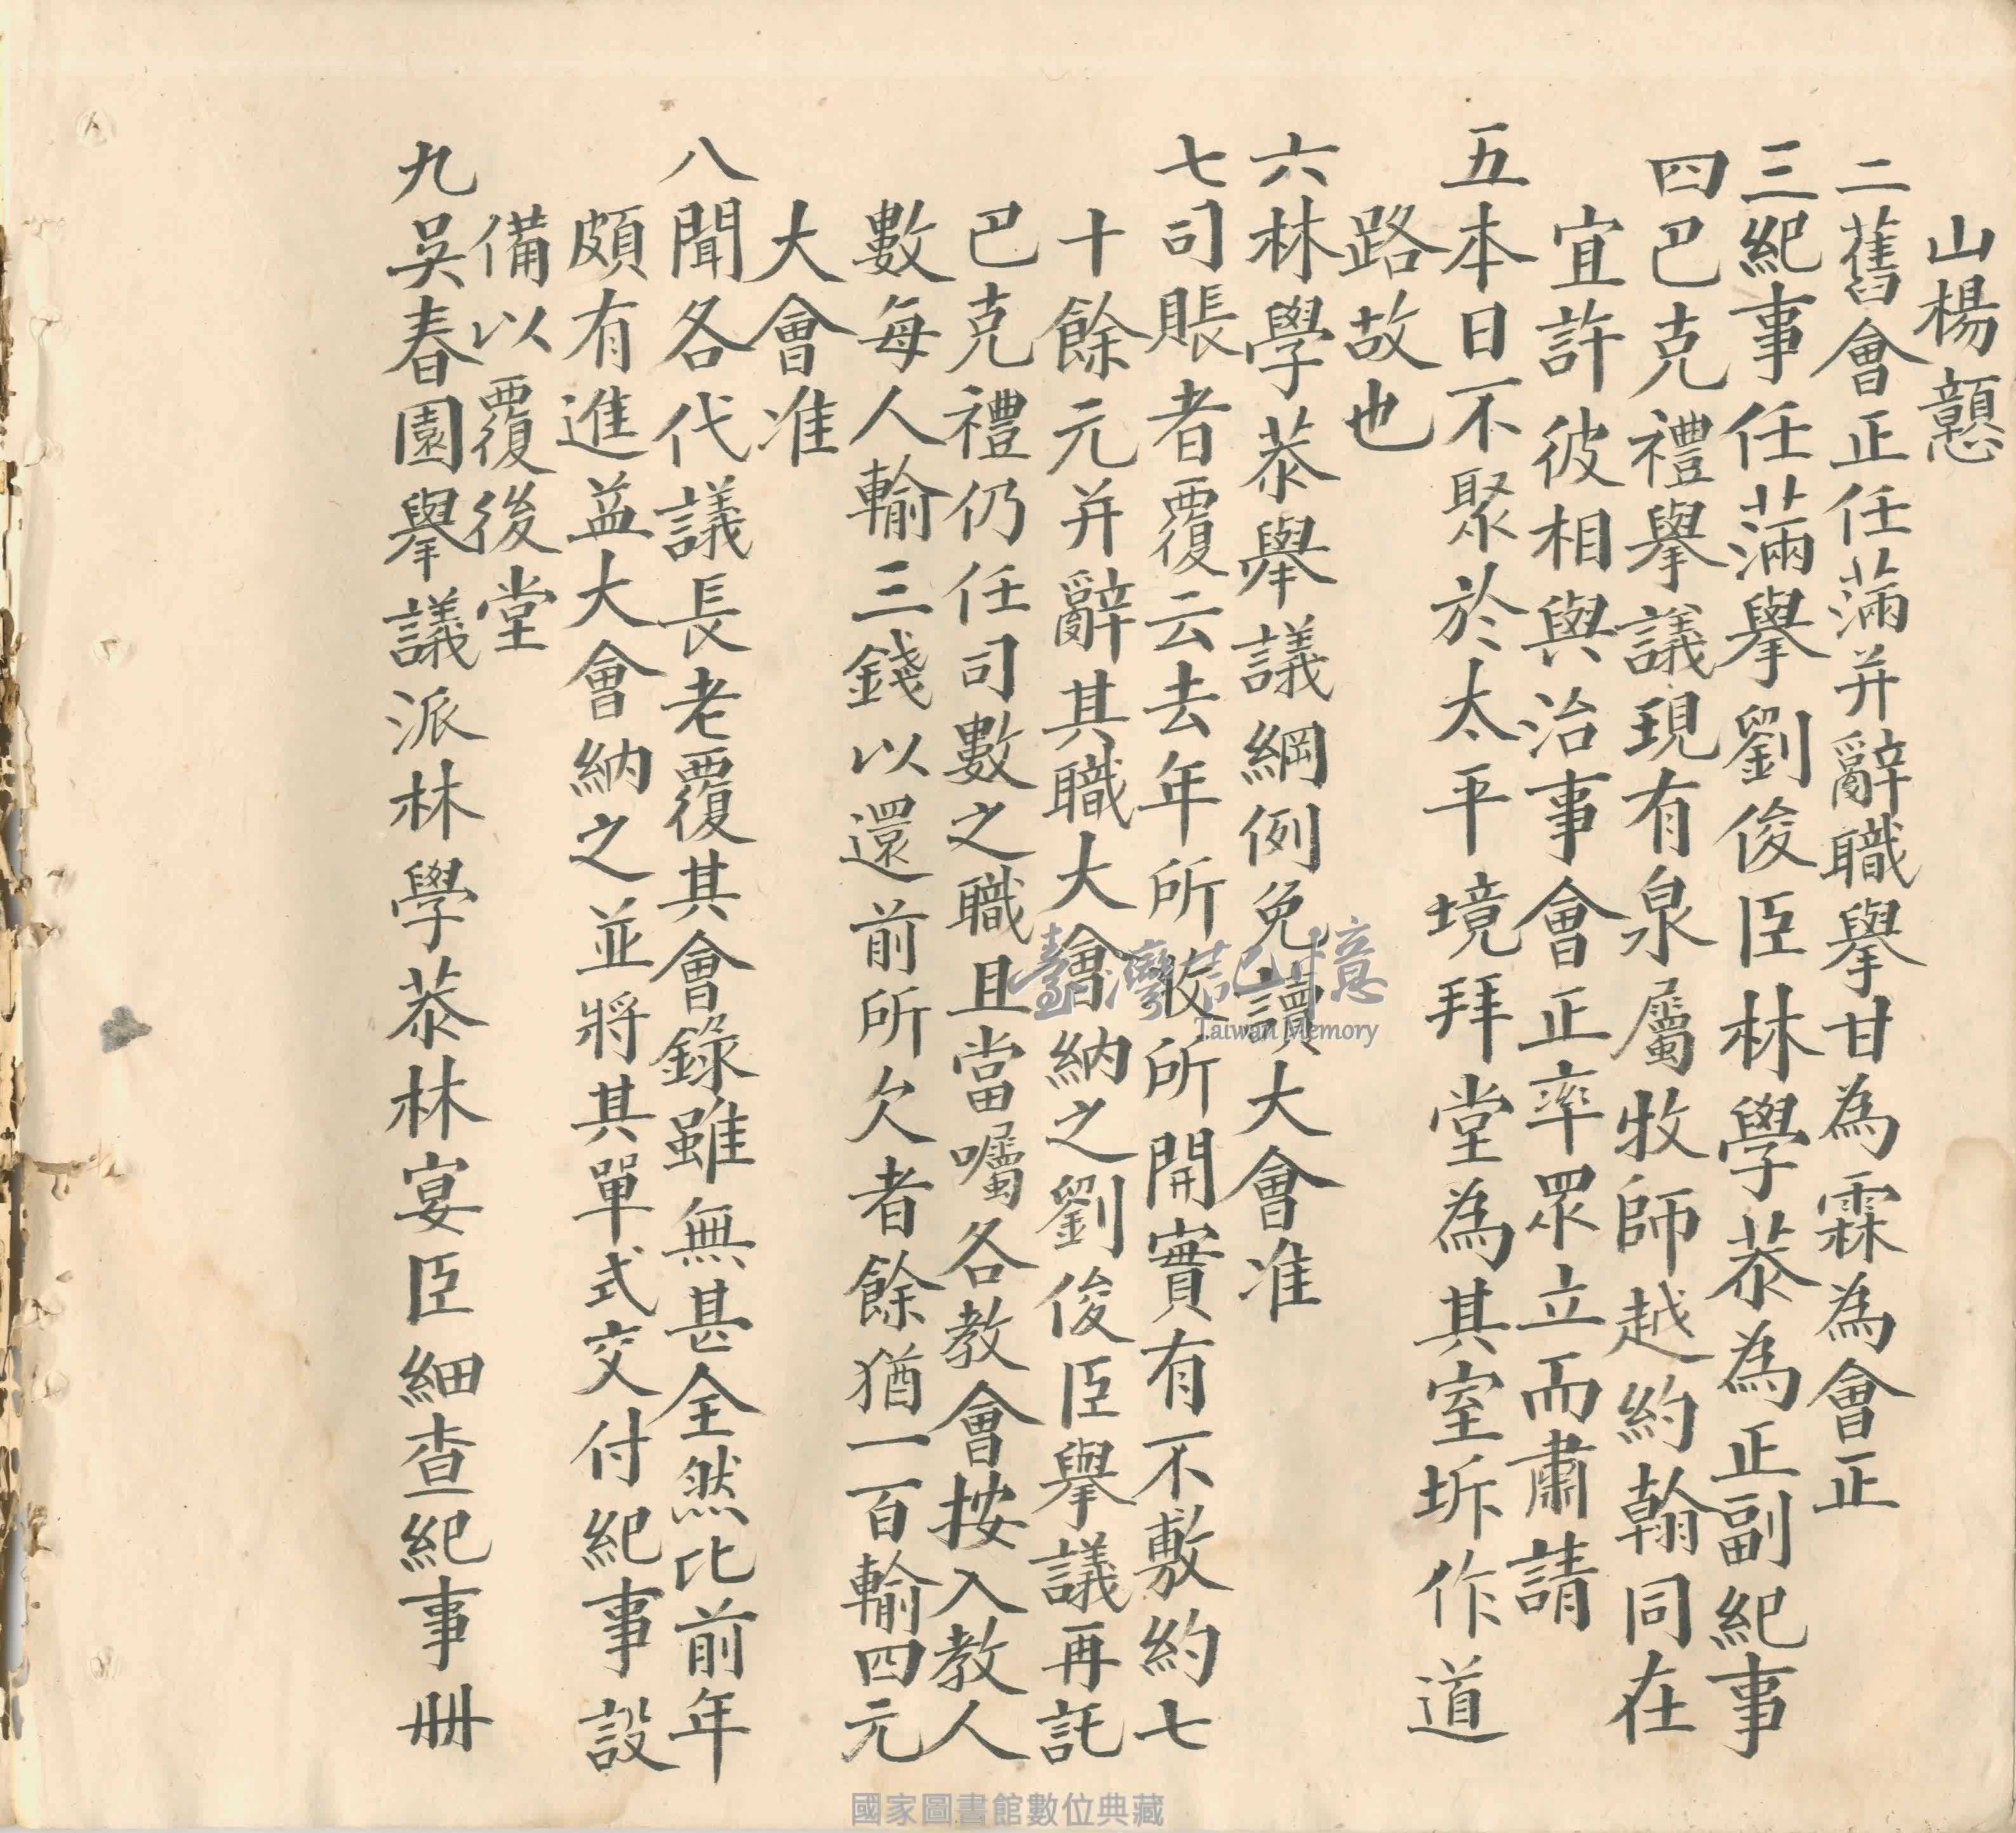 山楊戇
二舊會正任滿并辭職擧甘為霖為會正
三紀事任滿擧劉俊臣林學恭為正副紀事
四巴克禮擧議現有泉屬牧師越約翰同在
宜許彼相與治事會正率眾立而肅請
五本日不聚於太平境拜堂為其室坼作道
路故也
六林學恭擧議綱例免讀大會准
七司賬者覆云去年所收所開實有不敷約七
十餘元并辭其職大會納之劉俊臣擧議再託
巴克禮仍任司數之職且當囑各教會按入教人
數每人輸三錢以還前所欠者餘猶一百輸四元
大會准
八聞各代議長老覆其會錄雖無甚全然比前年
頗有進益大會納之並將其單式交付紀事設
備以覆後堂
九吳春園擧議派林學恭林宴臣細查紀事冊
臺灣記憶
Taiwan Memory
國家圖書館數位典藏